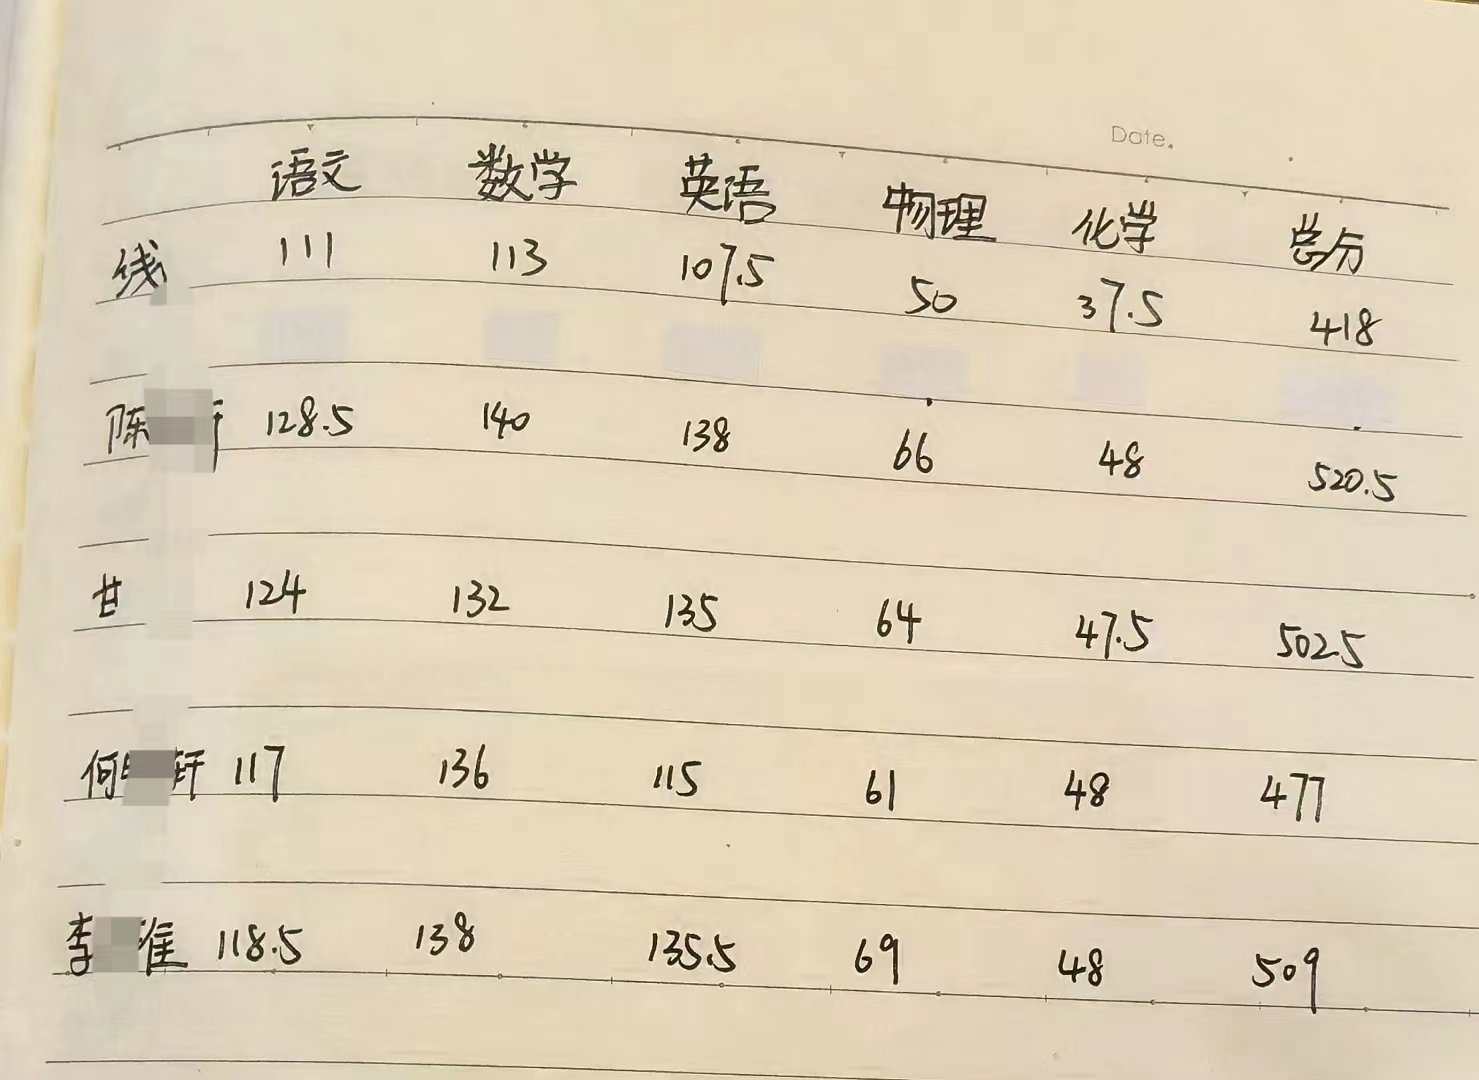 Date.
语文 数学 英语 物理 化学 总分
线 111 113 107.5 50 37.5 418
陈 128.5 140 138 66 48 520.5
甘 124 132 135 64 47.5 502.5
何 轩 117 136 115 61 48 477
李 淮 118.5 138 135.5 69 48 509